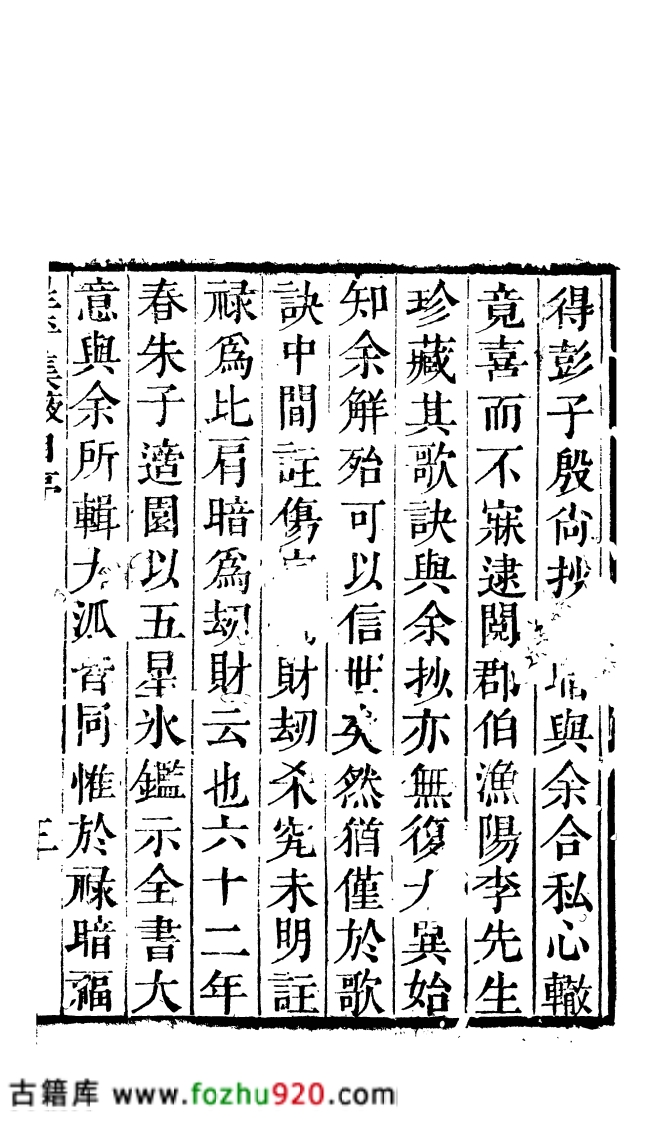 得彭子殷尙抄與余合私心轍
竟喜而不寐逮閱郡伯漁陽李先生
珍藏其歌訣與余抄亦無復大異始
知余解殆可以信世矣然猶僅於歌
訣中間註傷財刼杀究未明註
祿爲比肩暗爲刼財云也六十二年
春朱子適園以五星氷鑑示全書大
意與余所輯大派皆同惟於祿暗福
三
古籍库 www.fozhu920.com